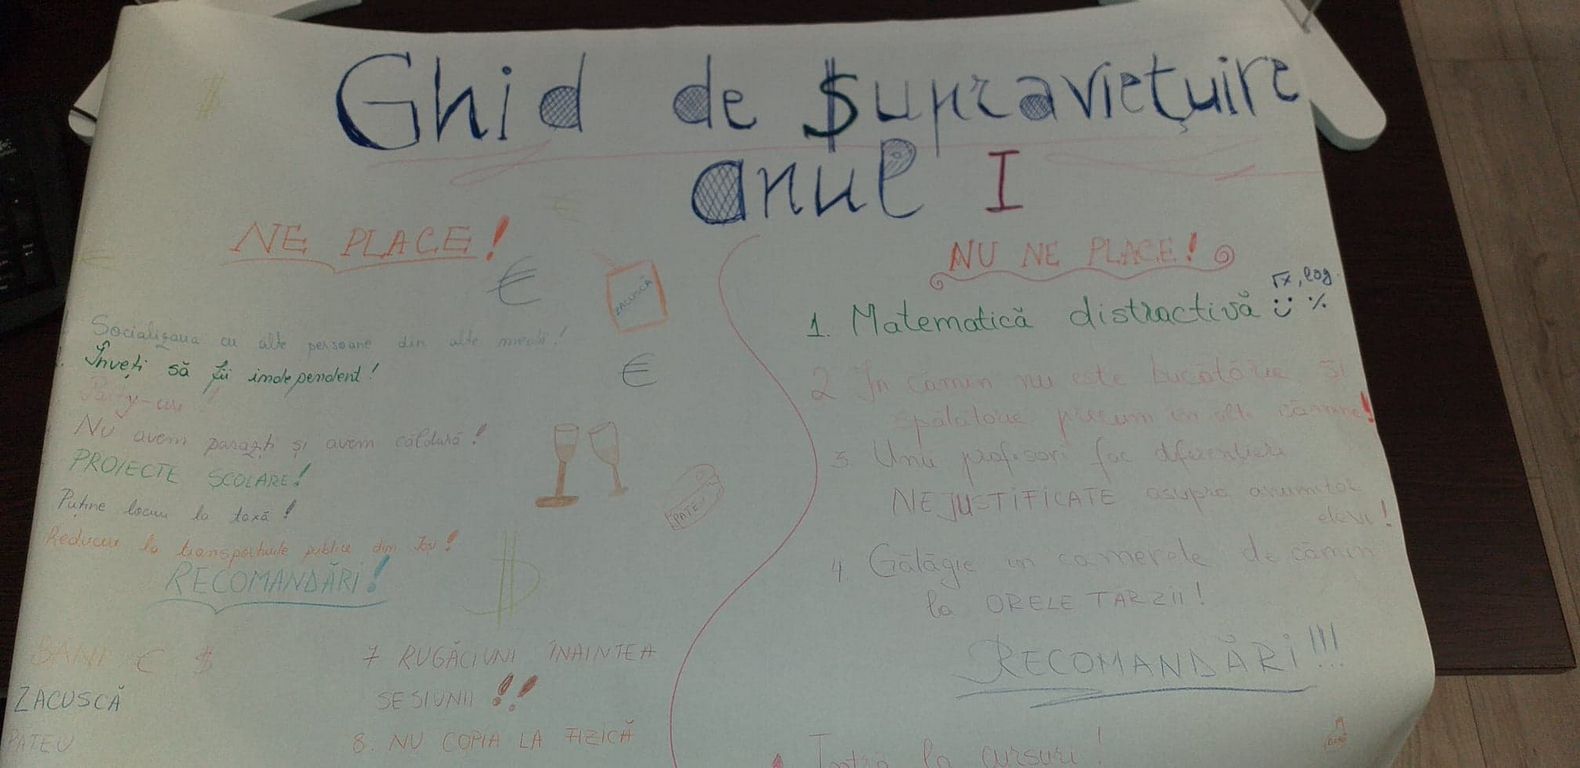 Ghid de $upraviețuire
anul I
NE PLACE!
€
ZACUSCĂ
Socializarea cu alte persoane din alte medii!
Înveți să fii independent!
€
Party-uri!
Nu avem paraziți și avem căldură!
PROIECTE ȘCOLARE!
Puține locuri la taxă!
PATEU
Reduceri la transporturile publice din Iași!
RECOMANDĂRI!
$
BANI € $
ZACUSCĂ
PATEU
7 RUGĂCIUNI ÎNAINTEA
SESIUNII !!
8. NU COPIA LA FIZICĂ
NU NE PLACE!
√x, log
1. Matematică distractivă %
2 În cămin nu este bucătărie și
spălătorie precum în alte cămine!
3. Unii profesori fac diferențieri
NEJUSTIFICATE asupra anumitor
elevi!
4 Gălăgie în camerele de cămin
la ORELE TÂRZII!
RECOMANDĂRI!!!
Intră la cursuri!